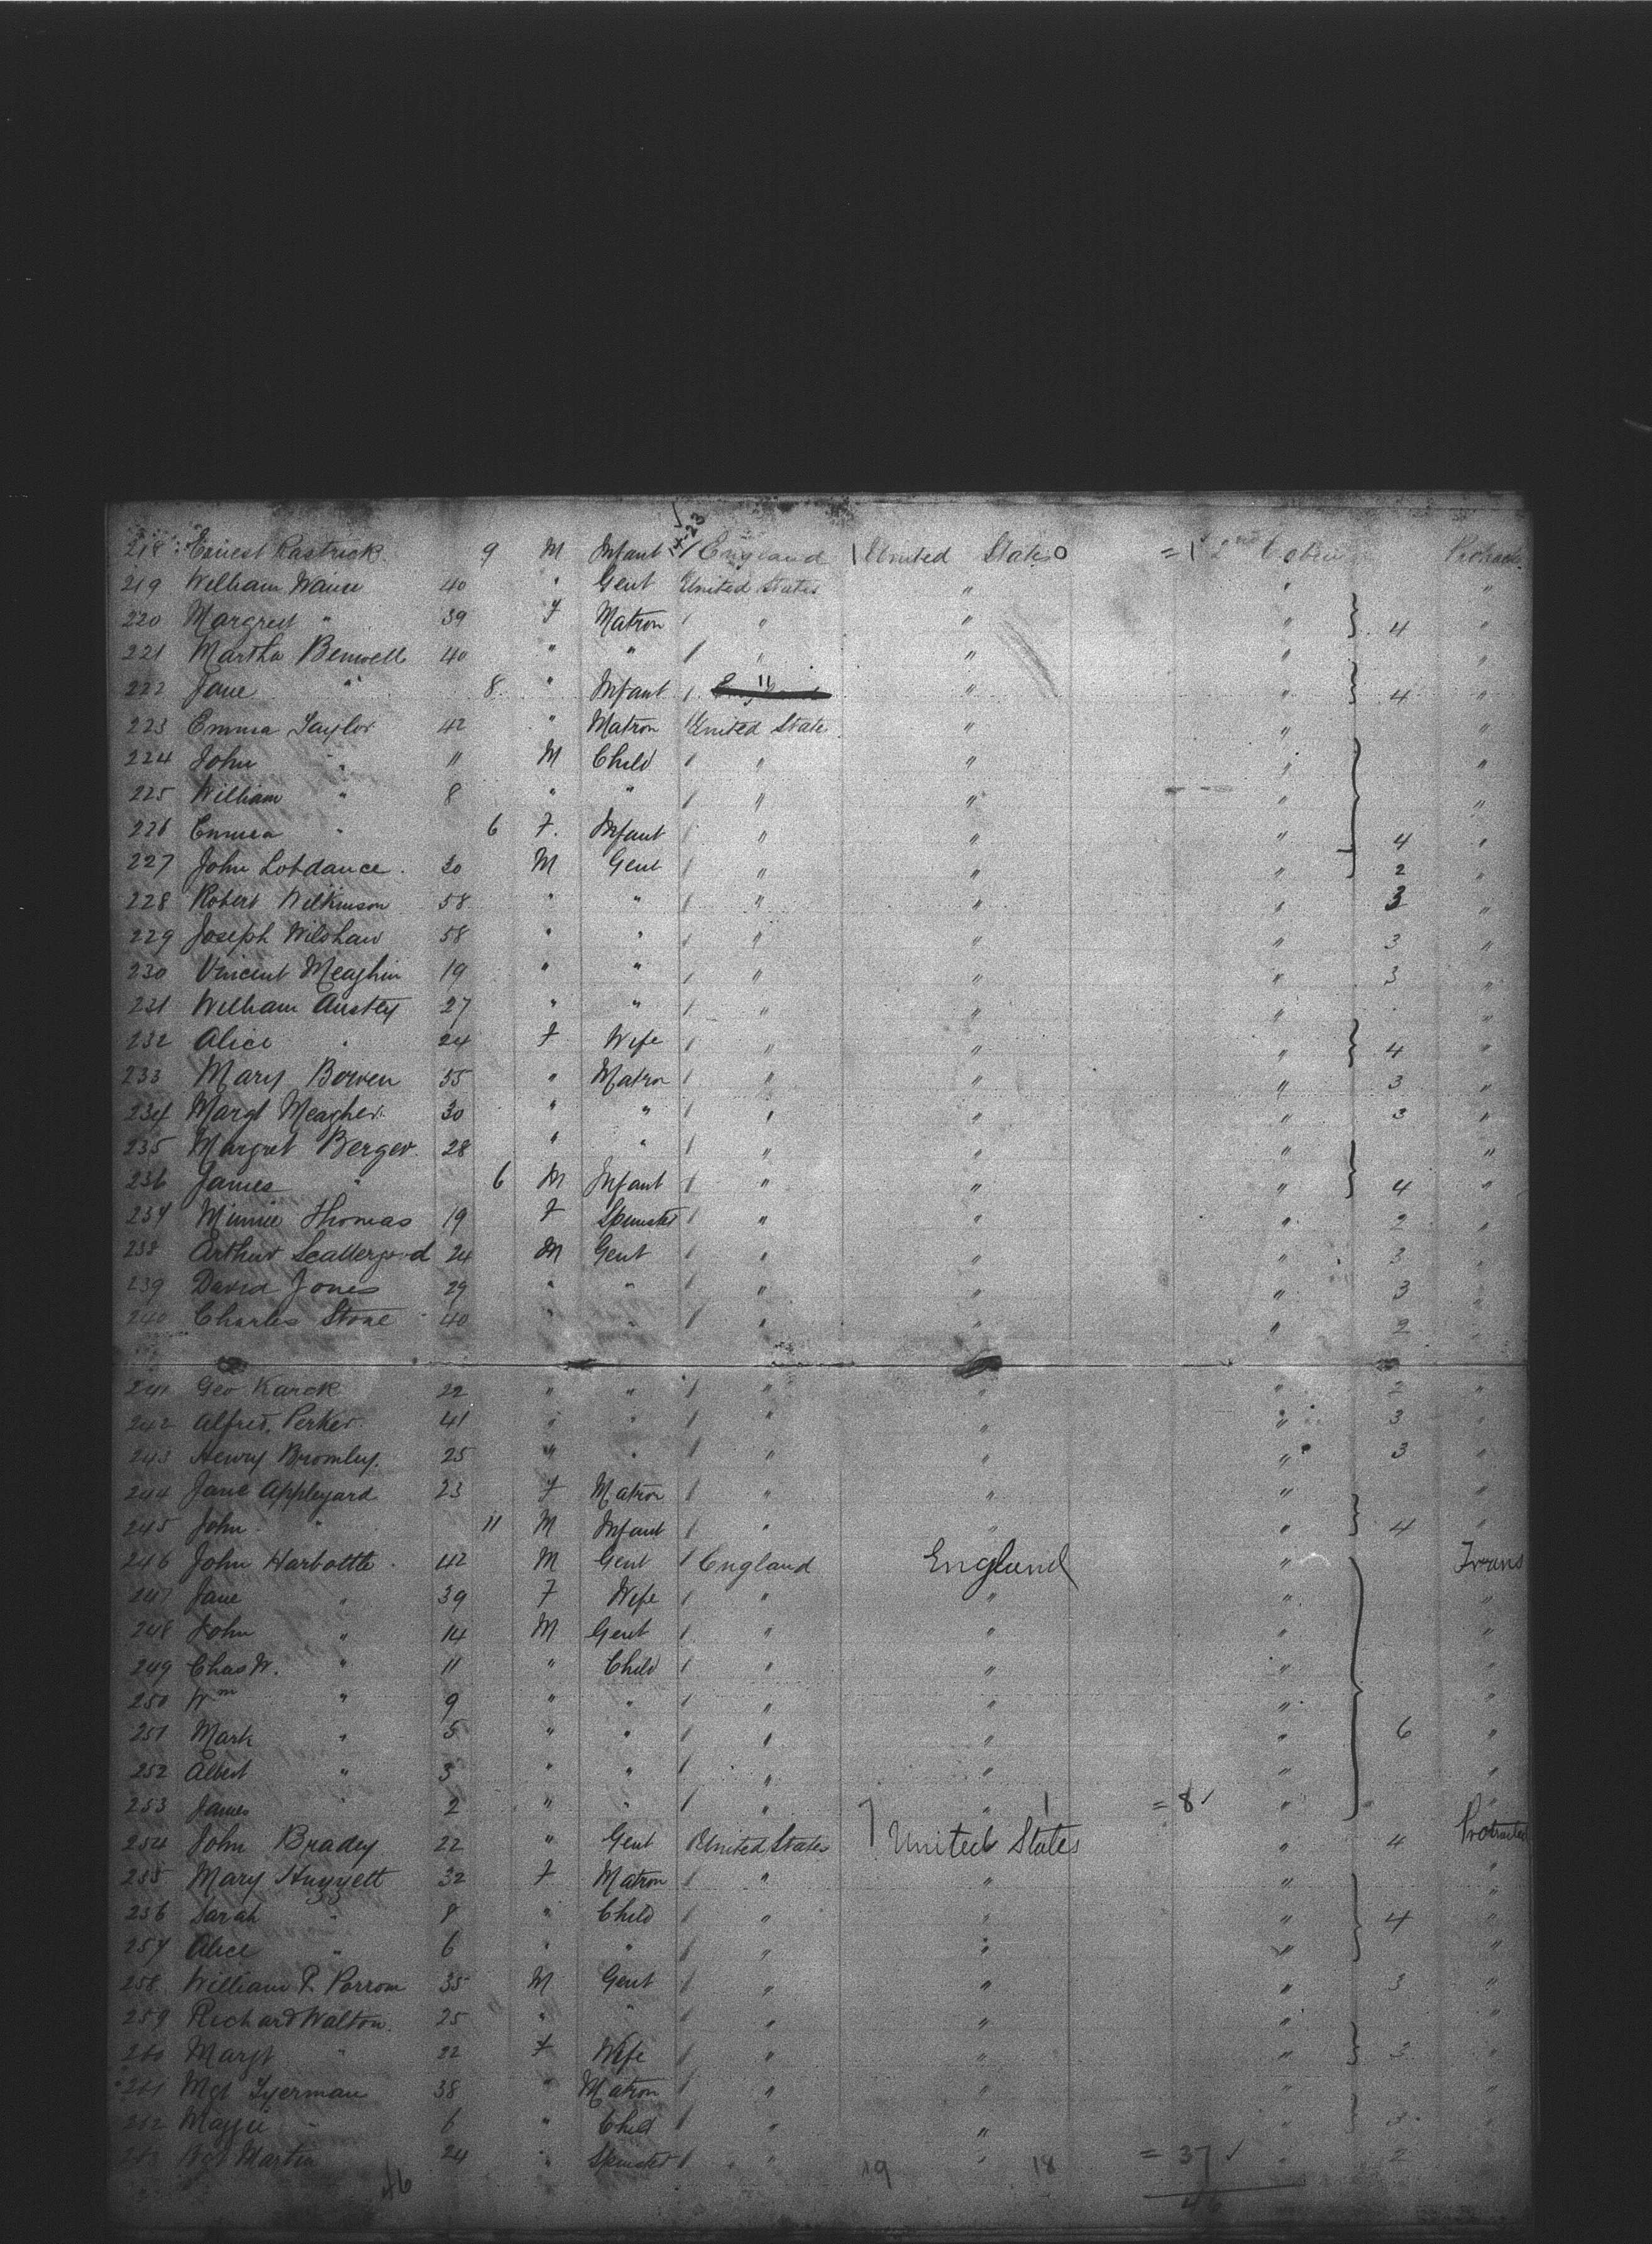 218 Ernest Rastrick 9 M Infant 1 England 1 United States 0 = 1 2nd Cabin Protract.
219 William 40 " Gent United States " " "
220 Margret " 39 F Matron 1 " " " 4 "
221 Martha Benwell 40 " " 1 " " " "
222 Jane " 8 " Infant 1 " " " 4 "
223 Emma Taylor 42 " Matron United State " " "
224 John " 11 M Child 1 " " " "
225 William " 8 " " 1 " " " "
226 Emma " 6 F. Infant 1 " " " 4 "
227 John Lobdance 30 M Gent 1 " " " 2 "
228 Robert Wilkinson 58 " " 1 " " " 3 "
229 Joseph Wilshaw 58 " " 1 " " " 3 "
230 Vincent Meaghin 19 " " 1 " " " 3 "
231 William Anstey 27 " " 1 " " " "
232 Alice " 24 F Wife 1 " " " 4 "
233 Mary Bowen 55 " Matron 1 " " " 3 "
234 Margt Meagher 30 " " 1 " " " 3 "
235 Margret Berger 28 " " 1 " " " "
236 James " 6 M Infant 1 " " " 4 "
237 Minnie Thomas 19 F Spinster 1 " " " 2 "
238 Arthur Scattergood 24 M Gent 1 " " " 3 "
239 David Jones 29 " " 1 " " " 3 "
240 Charles Stone 40 " " 1 " " " 2 "
241 Geo Karck 22 " " 1 " " " 2 "
242 Alfred Perker 41 " " 1 " " " 3 "
243 Henry Bromley. 25 " " 1 " " " 3 "
244 Jane Appleyard 23 F Matron 1 " " " "
245 John " 11 M Infant 1 " " " 4 "
246 John Harbottle 42 M Gent 1 England England " Trans
247 Jane " 39 F Wife 1 " " " "
248 John " 14 M Gent 1 " " " "
249 Chas W. " 11 " Child 1 " " " "
250 Wm " 9 " " 1 " " " "
251 Mark " 5 " " 1 " " " 6 "
252 Albert " 3 " " 1 " " " "
253 James " 2 " " 1 " " = 8 " "
254 John Bradey 22 " Gent United States United States " 4 Protracted
255 Mary Huggett 32 F Matron 1 " " " "
256 Sarah " 8 " Child 1 " " " 4 "
257 Alice " 6 " " 1 " " " "
258 William P. Parrom 35 M Gent 1 " " " 3 "
259 Richard Walton. 25 " " 1 " " " "
260 Margt " 22 F Wife 1 " " " 3 "
261 Mgt Tyerman 38 " Matron 1 " " " "
262 Maggie " 6 " Child 1 " " " 3 "
263 Martin 24 " Spinster 1 " " = 37 " 2
46 19 18 46